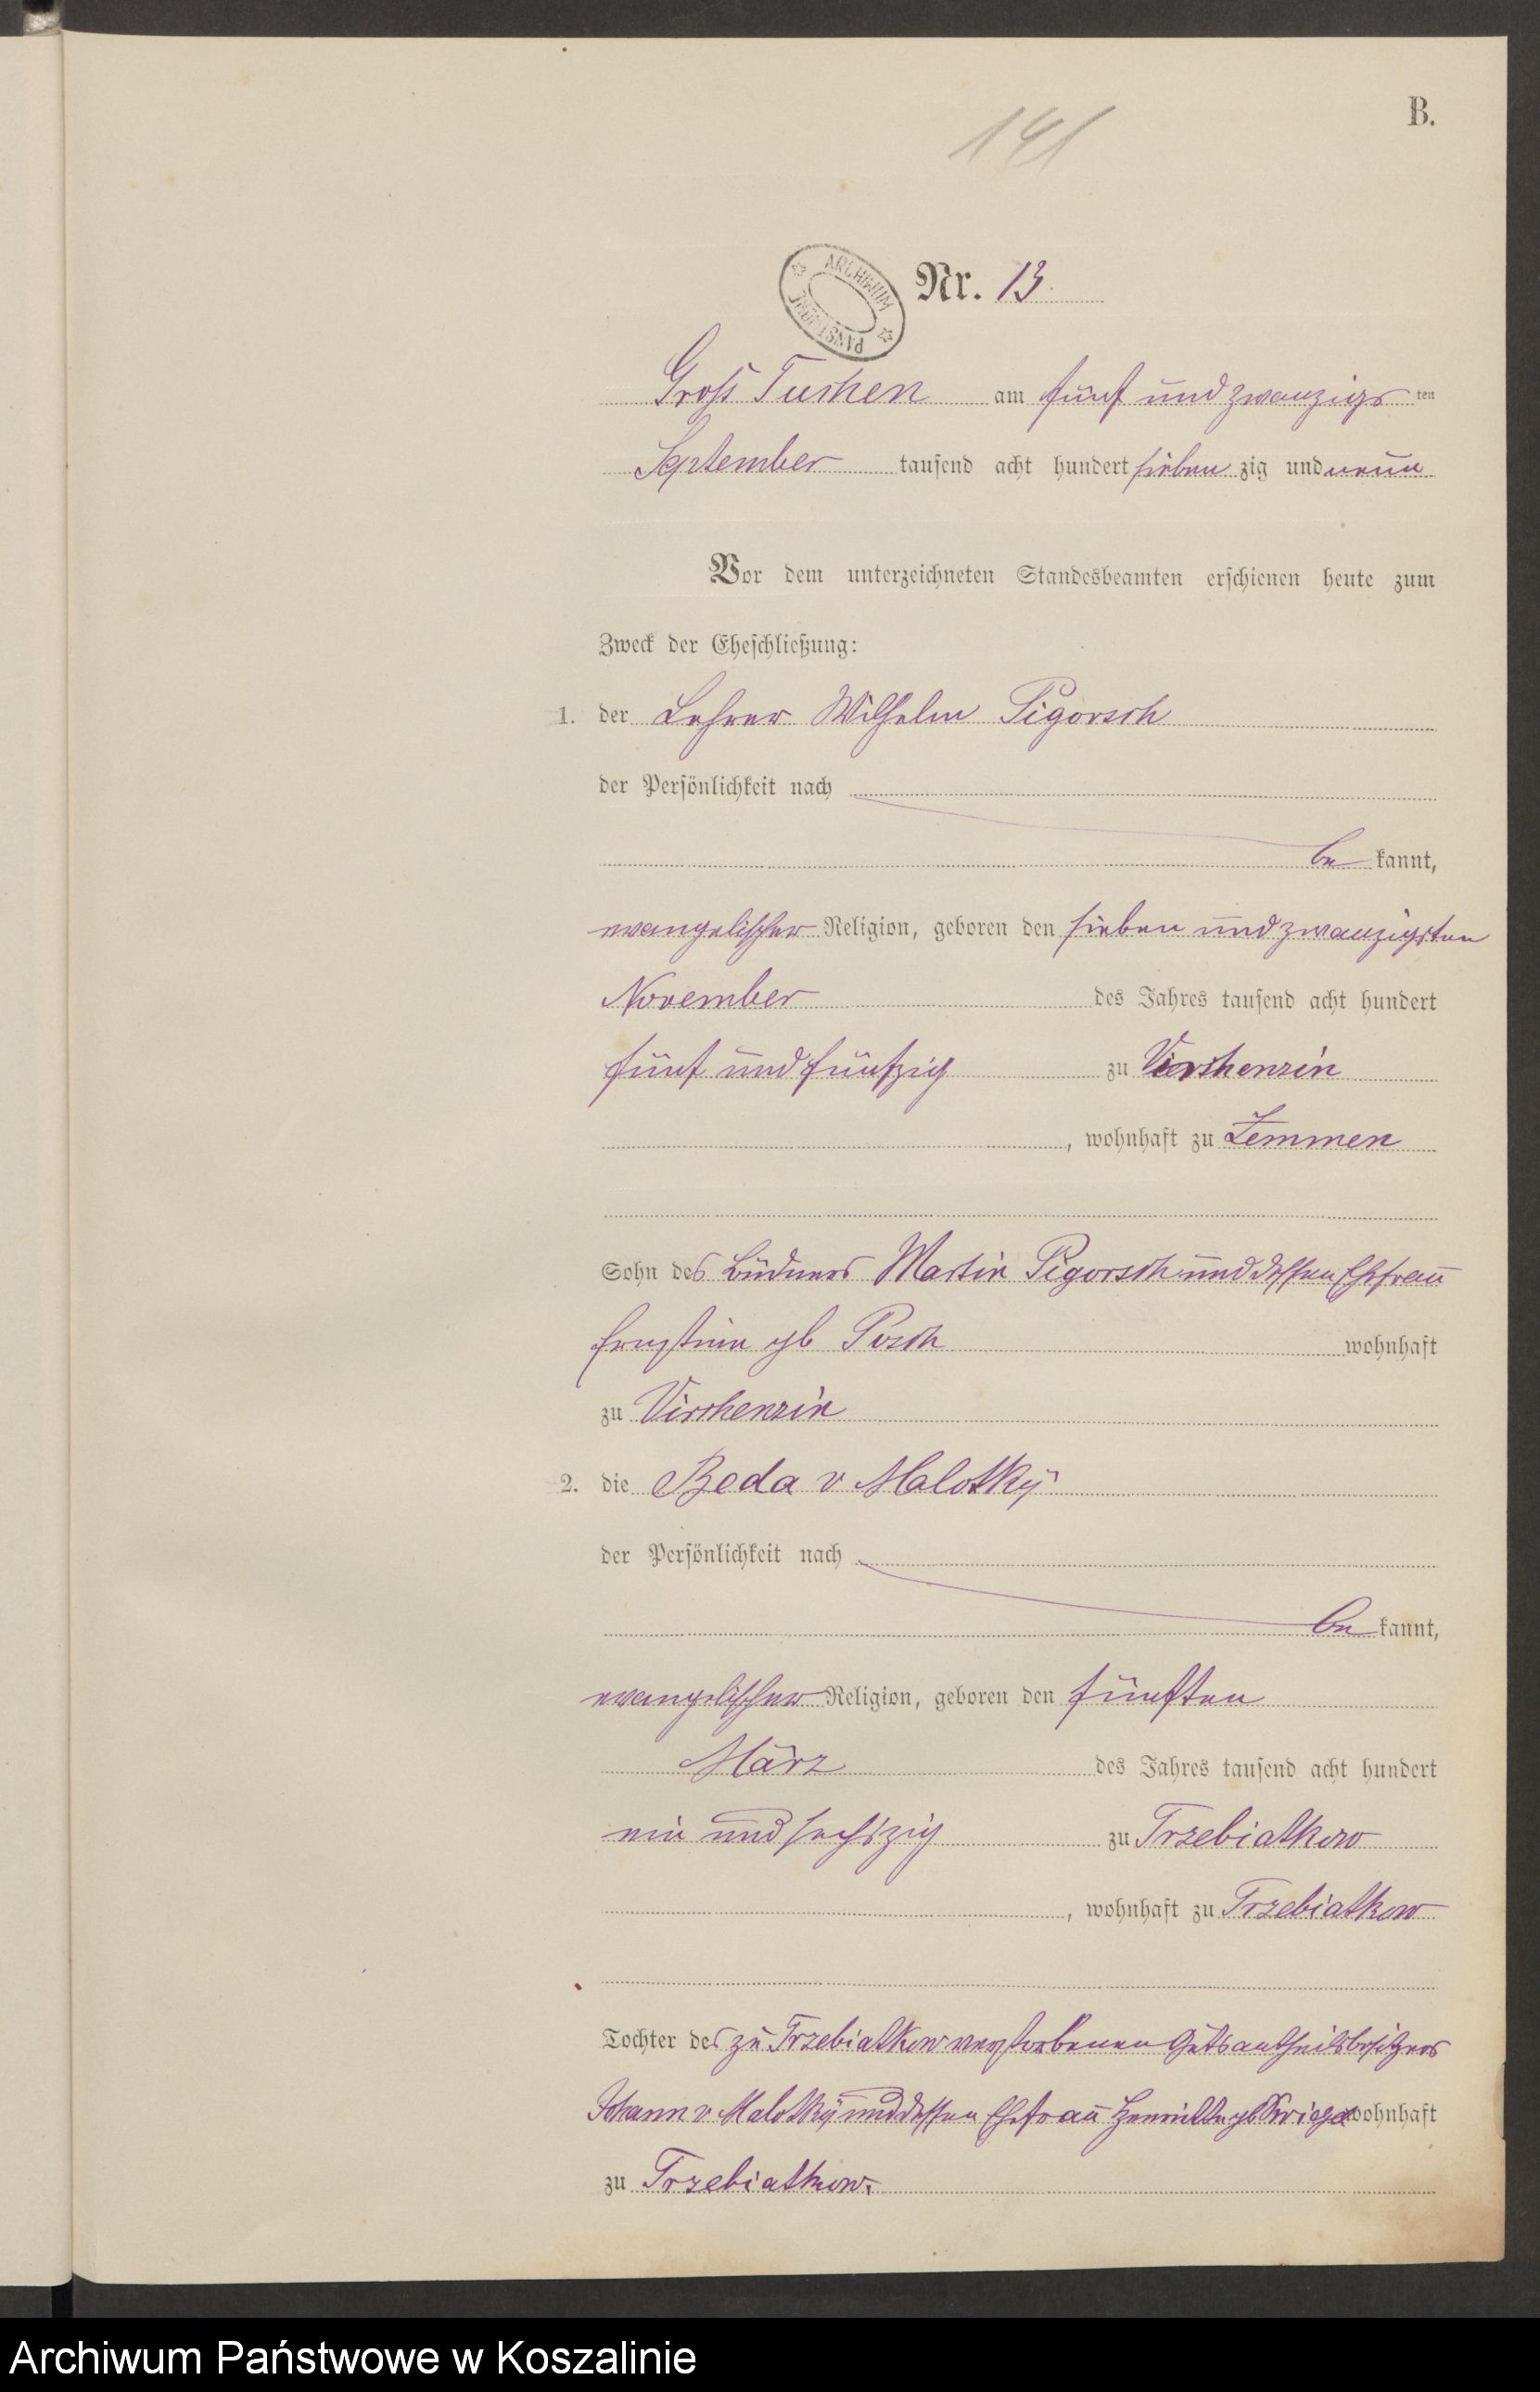 B.
141
ARCHIWUM PAŃSTWOWE
Nr. 13.
Groß Tuchen am fünf und zwanzigs ten
September tausend acht hundert sieben zig und neun
Vor dem unterzeichneten Standesbeamten erschienen heute zum
Zweck der Eheschließung:
1. der Lehrer Wilhelm Pigorsch
der Persönlichkeit nach
be kannt,
evangelischer Religion, geboren den sieben und zwanzigsten
November des Jahres tausend acht hundert
fünf und fünfzig zu Virchenzin
, wohnhaft zu Zemmen
Sohn des Büdners Martin Pigorsch und dessen Ehefrau
Ernstine gb wohnhaft
zu Virchenzin
2. die Beda v Malotky
der Persönlichkeit nach
be kannt,
evangelischer Religion, geboren den fünften
März des Jahres tausend acht hundert
ein und sechszig zu Trzebiatkow
, wohnhaft zu Trzebiatkow
Tochter des zu Trzebiatkow verstorbenen Gutsantheilsbesitzers
Johann v Malotky und dessen Ehefrau gb wohnhaft
zu Trzebiatkow.
Archiwum Państwowe w Koszalinie